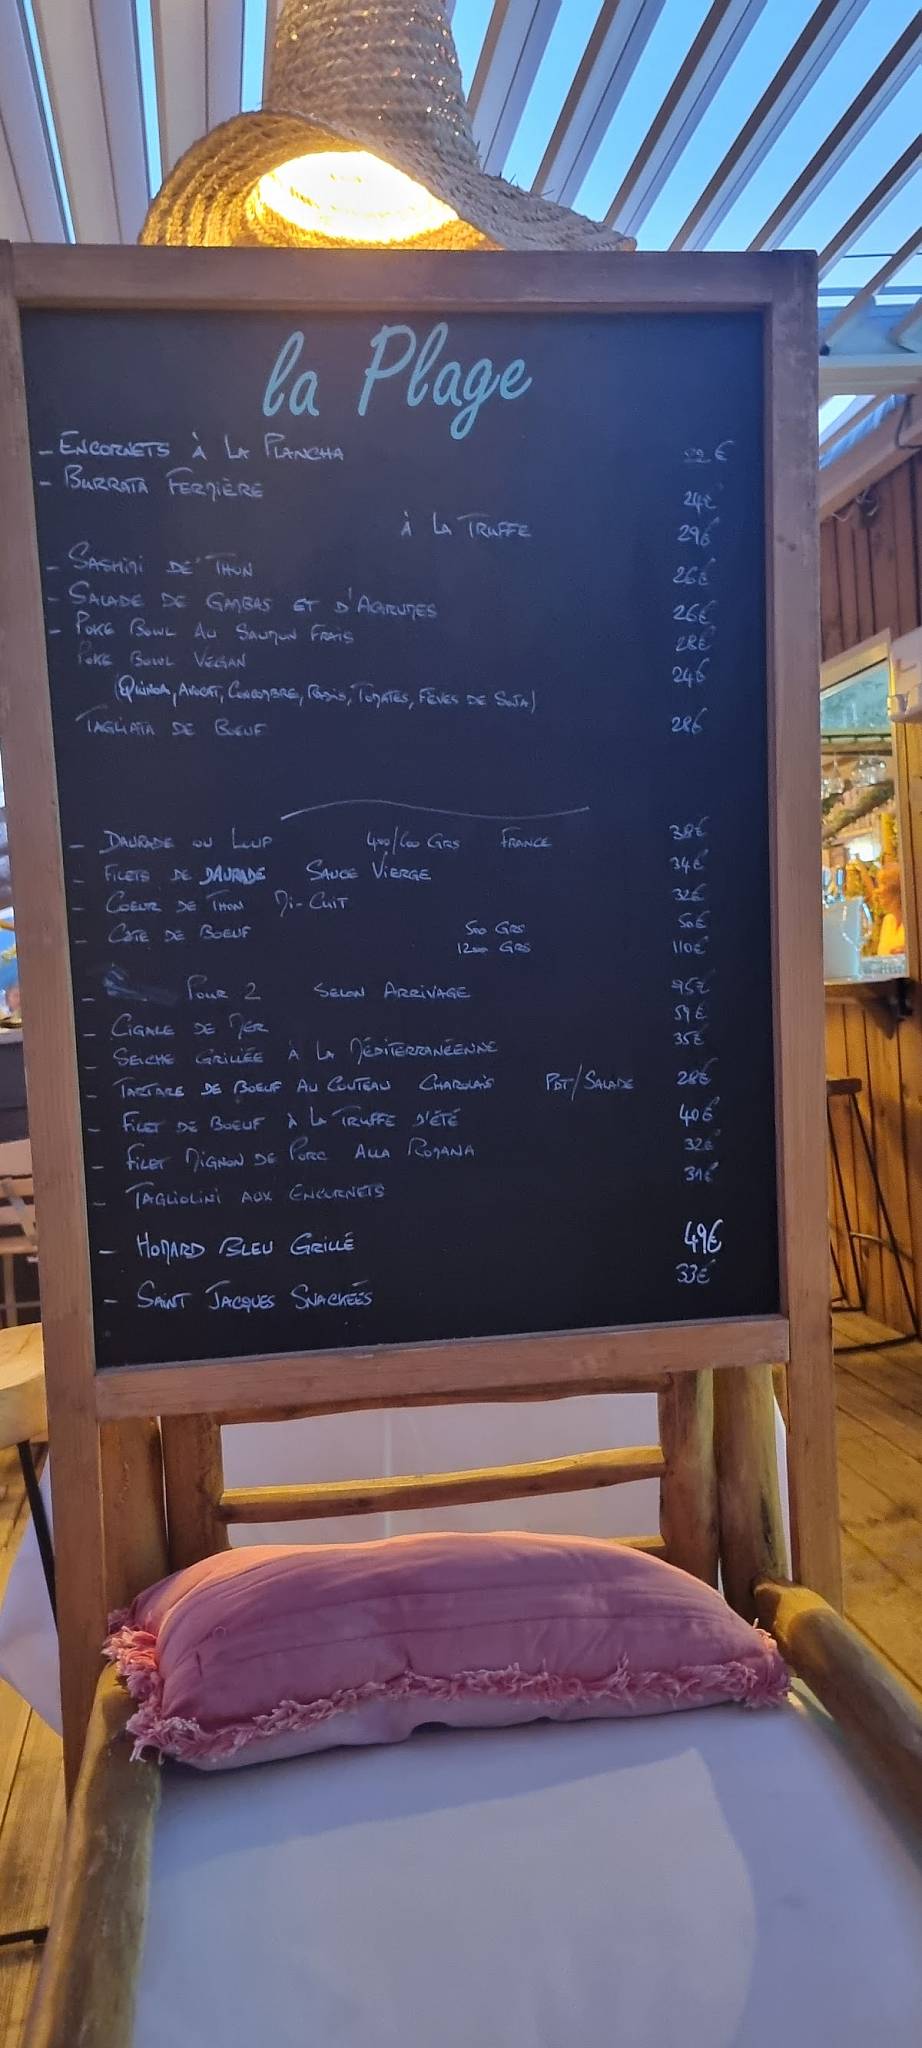 la Plage
- ENCORNETS À LA PLANCHA €
- BURRATA FERMIÈRE 24€
À LA TRUFFE 29€
- SASHIMI DE THON 26€
- SALADE DE GAMBAS ET D'AGRUMES 26€
- POKE BOWL AU SAUMON FRAIS 28€
POKE BOWL VEGAN 24€
(QUINOA, AVOCAT, CONCOMBRE, RADIS, TOMATES, FÈVES DE SOJA)
TAGLIATA DE BŒUF 28€
- DAURADE OU LOUP 400/600 GRS FRANCE 38€
- FILETS DE DAURADE SAUCE VIERGE 34€
- COEUR DE THON MI-CUIT 32€
- CÔTE DE BOEUF 500 GRS 50€
1200 GRS 110€
- POUR 2 SELON ARRIVAGE 95€
- CIGALE DE MER 59€
- SEICHE GRILLÉE À LA MÉDITERRANÉENNE 35€
- TARTARE DE BOEUF AU COUTEAU CHAROLAIS PDT/SALADE 28€
- FILET DE BOEUF À LA TRUFFE D'ÉTÉ 40€
- FILET MIGNON DE PORC ALLA ROMANA 32€
- TAGLIOLINI AUX ENCORNETS 31€
- HOMARD BLEU GRILLÉ 49€
- SAINT JACQUES SNACKÉES 33€